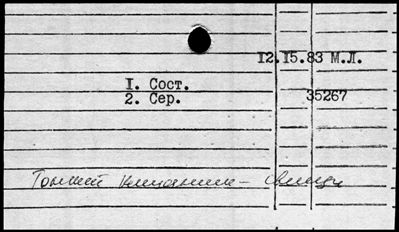 12.15.83 М.Л.
1. Сост.
2. Сер. 35267
Тонкий